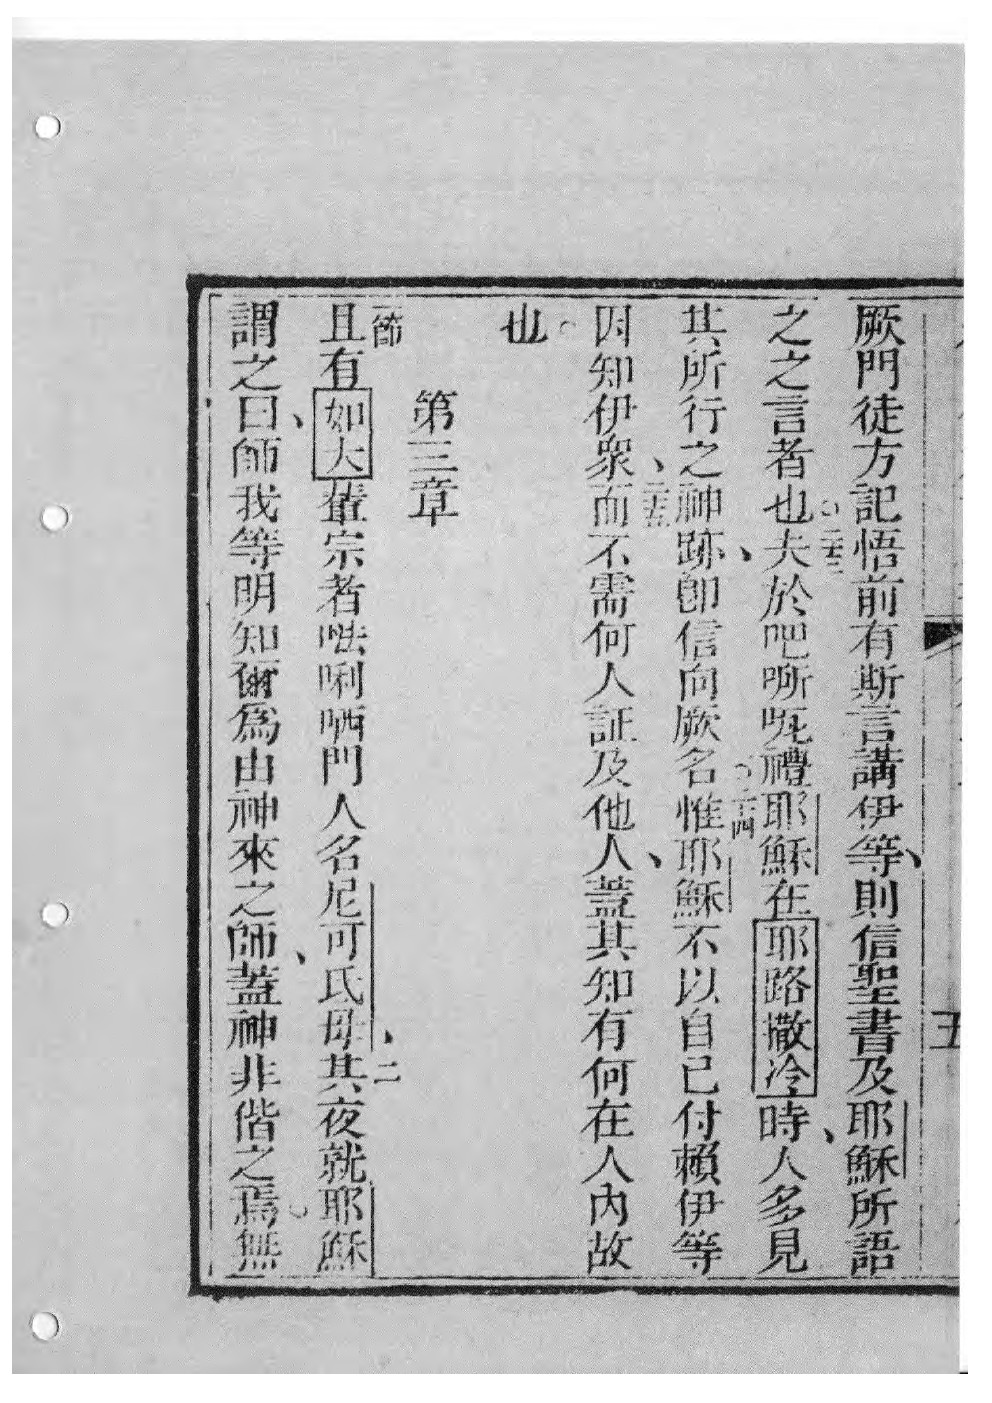 厥門徒方記悟前有斯言講伊等、則信聖書及耶穌所語
之之言者也。二十二夫於吧所呢禮耶穌在耶路撒冷時、人多見
其所行之神跡、卽信向厥名。二十四惟耶穌不以自己付賴伊等
因知伊衆、二十五而不需何人証及他人、蓋其知有何在人內故
也。
第三章
一節且有如大輩宗者㗒唎哂門人名尼可氏母、二其夜就耶穌
謂之曰、師我等明知爾爲由神來之師、蓋神非偕之焉。無
五